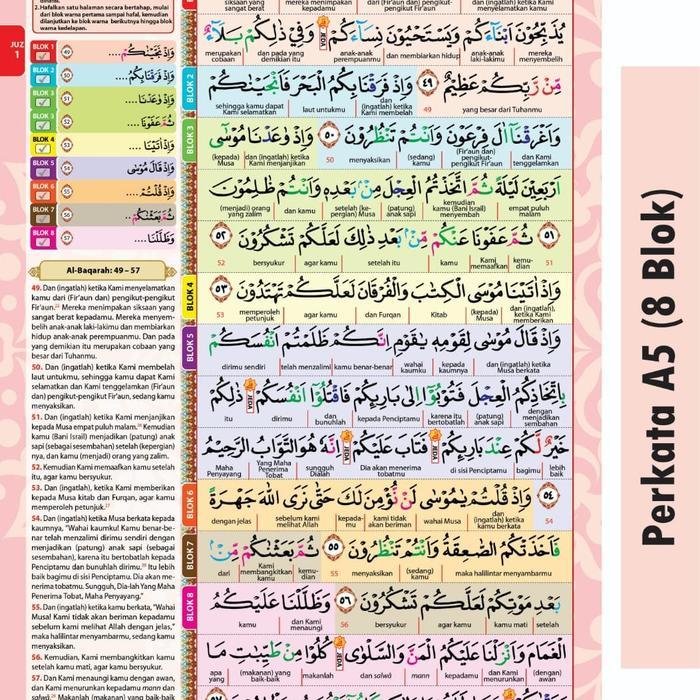 2. Hafalkan satu halaman secara bertahap, mulai
dari blok warna pertama sampai hafal, kemudian
dilanjutkan ke blok warna berikutnya hingga blok
warna kedelapan.
JUZ
1
BLOK 1
٤٩
وَاِذْ نَجَّيْنٰكُمْ....
BLOK 2
٥٠
وَاِذْ فَرَقْنَا بِكُمُ....
BLOK 3
٥١
وَاِذْ وٰعَدْنَا....
BLOK 3
٥٢
ثُمَّ عَفَوْنَا....
BLOK 4
٥٣
وَاِذْ اٰتَيْنَا....
BLOK 5
٥٤
وَاِذْ قَالَ مُوْسٰى
BLOK 6
٥٥
وَاِذْ قُلْتُمْ....
BLOK 7
٥٦
ثُمَّ بَعَثْنٰكُمْ..
BLOK 8
٥٧
وَظَلَّلْنَا....
Al-Baqarah: 49 – 57
49. Dan (ingatlah) ketika Kami menyelamatkan
kamu dari (Fir'aun dan) pengikut-pengikut
Fir'aun. Mereka menimpakan siksaan yang
sangat berat kepadamu. Mereka menyem-
belih anak-anak laki-lakimu dan membiarkan
hidup anak-anak perempuanmu. Dan pada
yang demikian itu merupakan cobaan yang
besar dari Tuhanmu.
50. Dan (ingatlah) ketika Kami membelah
laut untukmu, sehingga kamu dapat Kami
selamatkan dan Kami tenggelamkan (Fir'aun
dan) pengikut-pengikut Fir'aun, sedang kamu
menyaksikan.
51. Dan (ingatlah) ketika Kami menjanjikan
kepada Musa empat puluh malam. Kemudian
kamu (Bani Israil) menjadikan (patung) anak
sapi (sebagai sesembahan) setelah (kepergian)-
nya, dan kamu (menjadi) orang yang zalim.
52. Kemudian Kami memaafkan kamu setelah
itu, agar kamu bersyukur.
53. Dan (ingatlah), ketika Kami memberikan
kepada Musa kitab dan Furqan, agar kamu
memperoleh petunjuk.
54. Dan (ingatlah) ketika Musa berkata kepada
kaumnya, "Wahai kaumku! Kamu benar-be-
nar telah menzalimi dirimu sendiri dengan
menjadikan (patung) anak sapi (sebagai
sesembahan), karena itu bertobatlah kepada
Penciptamu dan bunuhlah dirimu. Itu lebih
baik bagimu di sisi Penciptamu. Dia akan me-
nerima tobatmu. Sungguh, Dia-lah Yang Maha
Penerima Tobat, Maha Penyayang."
55. Dan (ingatlah) ketika kamu berkata, "Wahai
Musa! Kami tidak akan beriman kepadamu
sebelum kami melihat Allah dengan jelas,"
maka halilintar menyambarmu, sedang kamu
menyaksikan.
56. Kemudian, Kami membangkitkan kamu
setelah kamu mati, agar kamu bersyukur.
57. Dan Kami menaungi kamu dengan awan,
dan Kami menurunkan kepadamu mann dan
salwā. Makanlah (makanan) yang baik-baik
يُذَبِّحُوْنَ اَبْنَاۤءَكُمْ وَيَسْتَحْيُوْنَ نِسَاۤءَكُمْ ۗ وَفِيْ ذٰلِكُمْ بَلَاۤءٌ
merupakan cobaan | dan pada yang demikian itu | anak-anak perempuanmu | dan membiarkan hidup | anak-anak laki-lakimu | mereka menyembelih
BLOK 2
مِّنْ رَّبِّكُمْ عَظِيْمٌ ٤٩ وَاِذْ فَرَقْنَا بِكُمُ الْبَحْرَ فَاَنْجَيْنٰكُمْ
sehingga kamu dapat Kami selamatkan | laut untukmu | dan (ingatlah) ketika Kami membelah | 49 | yang besar dari Tuhanmu
BLOK 3
وَاَغْرَقْنَآ اٰلَ فِرْعَوْنَ وَاَنْتُمْ تَنْظُرُوْنَ ٥٠ وَاِذْ وٰعَدْنَا مُوْسٰٓى
(kepada) Musa | dan (ingatlah) ketika Kami menjanjikan | 50 | menyaksikan | (sedang) kamu | (Fir'aun dan) pengikut-pengikut Fir'aun | dan Kami tenggelamkan
اَرْبَعِيْنَ لَيْلَةً ثُمَّ اتَّخَذْتُمُ الْعِجْلَ مِنْۢ بَعْدِهٖ وَاَنْتُمْ ظٰلِمُوْنَ
(menjadi) orang yang zalim | dan kamu | setelah (ke-pergian) Musa | (patung) anak sapi | kemudian kamu (Bani Israil) menyembah | empat puluh malam
٥١ ثُمَّ عَفَوْنَا عَنْكُمْ مِّنْۢ بَعْدِ ذٰلِكَ لَعَلَّكُمْ تَشْكُرُوْنَ ٥٢
52 | bersyukur | agar kamu | setelah itu | kamu | Kami memaafkan | kemu-dian | 51
BLOK 4
وَاِذْ اٰتَيْنَا مُوْسَى الْكِتٰبَ وَالْفُرْقَانَ لَعَلَّكُمْ تَهْتَدُوْنَ ٥٣
53 | memperoleh petunjuk | agar kamu | dan Furqan | Kitab | (kepada) Musa | dan (ingatlah), ketika Kami memberikan
BLOK 5
وَاِذْ قَالَ مُوْسٰى لِقَوْمِهٖ يٰقَوْمِ اِنَّكُمْ ظَلَمْتُمْ اَنْفُسَكُمْ
dirimu sendiri | telah menzalimi | kamu benar-benar | wahai kaumku | kepada kaumnya | dan (ingatlah) ketika Musa berkata
بِاتِّخَاذِكُمُ الْعِجْلَ فَتُوْبُوْٓا اِلٰى بَارِئِكُمْ فَاقْتُلُوْٓا اَنْفُسَكُمْ ۗ ذٰلِكُمْ
itu | dirimu | dan bunuhlah | kepada Penciptamu | karena itu bertobatlah | (patung) anak sapi | dengan menjadikan sembahan
خَيْرٌ لَّكُمْ عِنْدَ بَارِئِكُمْ ۗ فَتَابَ عَلَيْكُمْ ۗ اِنَّهٗ هُوَ التَّوَّابُ الرَّحِيْمُ
Maha Penyayang | Yang Maha Penerima Tobat | sungguh Dialah | Dia akan menerima tobatmu | di sisi Penciptamu | bagimu | lebih baik
BLOK 6
٥٤ وَاِذْ قُلْتُمْ يٰمُوْسٰى لَنْ نُّؤْمِنَ لَكَ حَتّٰى نَرَى اللّٰهَ جَهْرَةً
dengan jelas | sebelum kami melihat Allah | kepada-mu | kami tidak akan beriman | wahai Musa | dan (ingatlah) ketika kamu berkata | 54
BLOK 7
فَاَخَذَتْكُمُ الصّٰعِقَةُ وَاَنْتُمْ تَنْظُرُوْنَ ٥٥ ثُمَّ بَعَثْنٰكُمْ مِّنْۢ
dari | Kami membangkitkan kamu | kemu-dian | 55 | menyaksikan | (sedang) kamu | maka halilintar menyambarmu
BLOK 8
بَعْدِ مَوْتِكُمْ لَعَلَّكُمْ تَشْكُرُوْنَ ٥٦ وَظَلَّلْنَا عَلَيْكُمُ
kamu | dan Kami menaungi | 56 | bersyukur | agar kamu | kamu mati | setelah
الْغَمَامَ وَاَنْزَلْنَا عَلَيْكُمُ الْمَنَّ وَالسَّلْوٰى ۗ كُلُوْا مِنْ طَيِّبٰتِ مَا
apa yang | (makanan) yang baik-baik | makanlah | dan salwā | mann | kepadamu | dan Kami menurunkan | (dengan) awan
Perkata A5 (8 Blok)